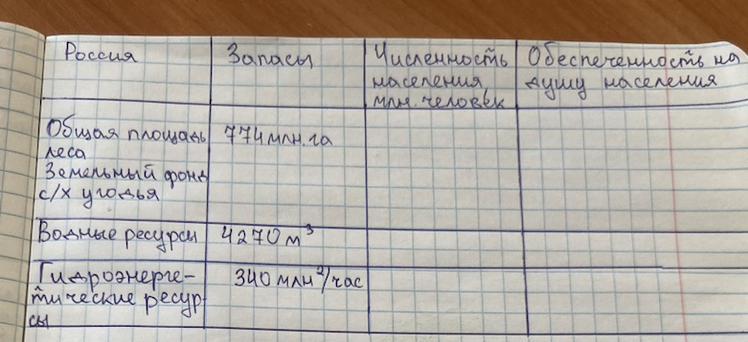 Россия
Запасы
Численность
населения,
млн. человек
Обеспеченность на
душу населения
Общая площадь
леса
Земельный фонд
с/х угодья
774 млн. га
Водные ресурсы
4270 м³
Гидроэнерге-
тические ресур-
сы
340 млн²/час